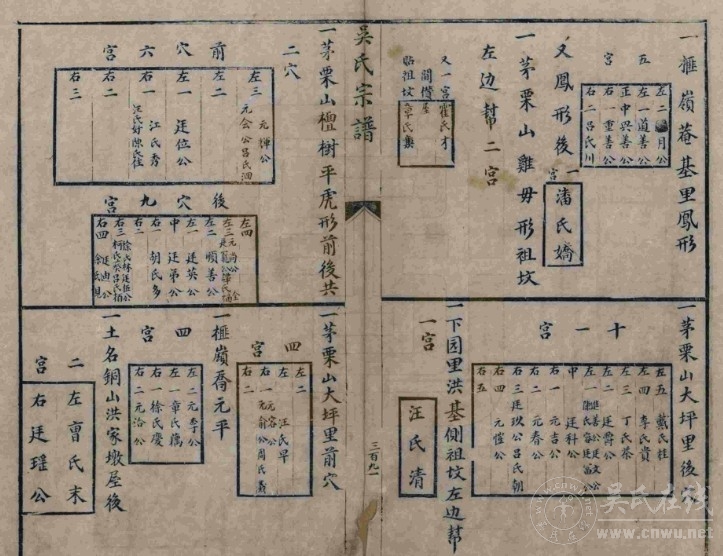 一榧嶺菴基里鳳形
五宮
左二
月公
左一
道善公
正中
興善公
右一
重善公
右二
呂氏川
又鳳形後一宮
潘氏嬌
一茅栗山雞毋形祖坟
左邉幇二宮
又一宮
霍氏才
間僣屋
貼祖坟
章氏集
一茅栗山大坪里後
十一宮
左五
戴氏桂
左四
李氏貴
左三
丁氏荼
左二
廷爵公
左一
中
廷科公
右一
元吉公
右二
元春公
右三
廷玖公
呂氏朝
右四
元愷公
右五
一下园里洪基側祖坟左邉幇
一宮
汪氏清
吳氏宗譜
三百九一
一茅栗山檀樹平虎形前後共
二穴
前穴六宮
左三
元鐸公
元会公
呂氏泗
左二
左一
廷位公
右一
江氏秀
汪氏好
陳氏住
右二
右三
後穴九宮
左四
左三
左二
順善公
左一
廷英公
中
廷弟公
右一
胡氏多
右二
右三
右四
廷迪公
一茅栗山大坪里前穴
四宮
左二
左一
汪氏早
右一
元容公
元俞公
周氏義
右二
一榧嶺脊元平
四宮
左二
元季公
左一
章氏藕
右一
徐氏慶
右二
元洛公
一土名銅山洪家墩屋後
二宮
左
曺氏末
右
廷瑶公
吴氏在线
www.cnwu.net